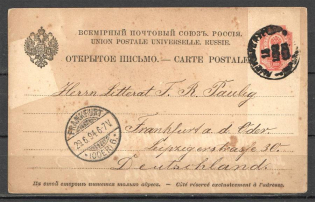 ВСЕМІРНЫЙ ПОЧТОВЫЙ СОЮЗЪ. РОССІЯ.
UNION POSTALE UNIVERSELLE. RUSSIE.
ОТКРЫТОЕ ПИСЬМО. — CARTE POSTALE
Herrn Litterat T. R. Paulig
Frankfurt a. d. Oder.
Leipzigerstrasse 30
Deutschland
FRANKFURT
29.6.94.6-7V.
(ODER)
На этой сторонѣ пишется только адресъ. — Côté réservé exclusivement à l'adresse.